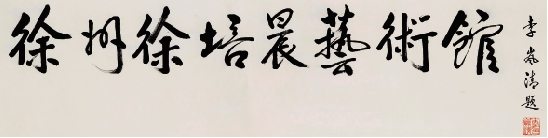 徐州徐培晨藝術館
李岚清題